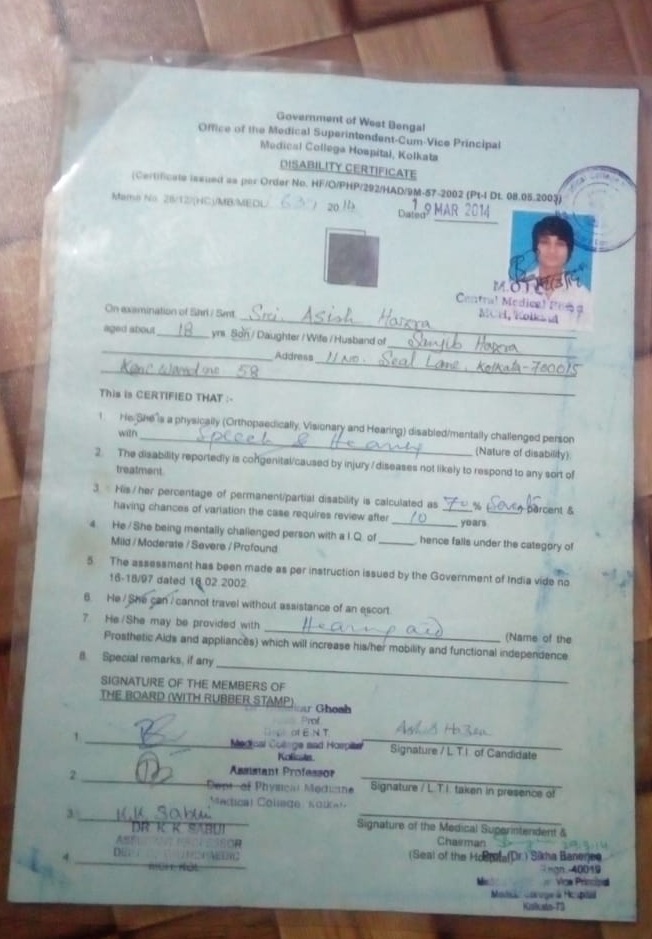 Government of West Bengal
Office of the Medical Superintendent-Cum-Vice Principal
Medical College Hospital, Kolkata
DISABILITY CERTIFICATE
(Certificate issued as per Order No. HF/O/PHP/292/HAD/9M-57-2002 (Pt-I Dt. 08.05.2003)
Memo No. 28/12/(HC)/MB/MEDL/ 637 2014 Dated 19 MAR 2014
Central Medical
MCH, Kolkata
On examination of Shri / Smt. Sri. Asish Hazra
aged about 18 yrs Son / Daughter / Wife / Husband of Sanjib Hazra
Address 11 No. Seal Lane, Kolkata-700015
58
This is CERTIFIED THAT :-
1. He/She is a physically (Orthopaedically, Visionary and Hearing) disabled/mentally challenged person
with Speech & Hearing (Nature of disability).
2. The disability reportedly is congenital/caused by injury / diseases not likely to respond to any sort of
treatment.
3. His / her percentage of permanent/partial disability is calculated as 70 % percent &
having chances of variation the case requires review after 10 years.
4. He / She being mentally challenged person with a I.Q. of hence falls under the category of
Mild / Moderate / Severe / Profound.
5. The assessment has been made as per instruction issued by the Government of India vide no.
16-18/97 dated 18.02.2002.
6. He / She can / cannot travel without assistance of an escort.
7. He / She may be provided with Hearing aid (Name of the
Prosthetic Aids and appliances) which will increase his/her mobility and functional independence.
8. Special remarks, if any
SIGNATURE OF THE MEMBERS OF
THE BOARD (WITH RUBBER STAMP)
Ghosh
Prof
Dept. of E.N.T.
1. Medical College and Hospital
Kolkata
Signature / L.T.I. of Candidate
2. Assistant Professor
Dept. of Physical Medicine
Medical College, Kolkata
Signature / L.T.I. taken in presence of
3. K.K. Sabui
DR K K SABUI
ASSISTANT PROFESSOR
4.
Signature of the Medical Superintendent &
Chairman
(Seal of the Hospital)
Prof.(Dr.) Sikha Banerjee
Regn.-40019
Vice Principal
Medical College & Hospital
Kolkata-73